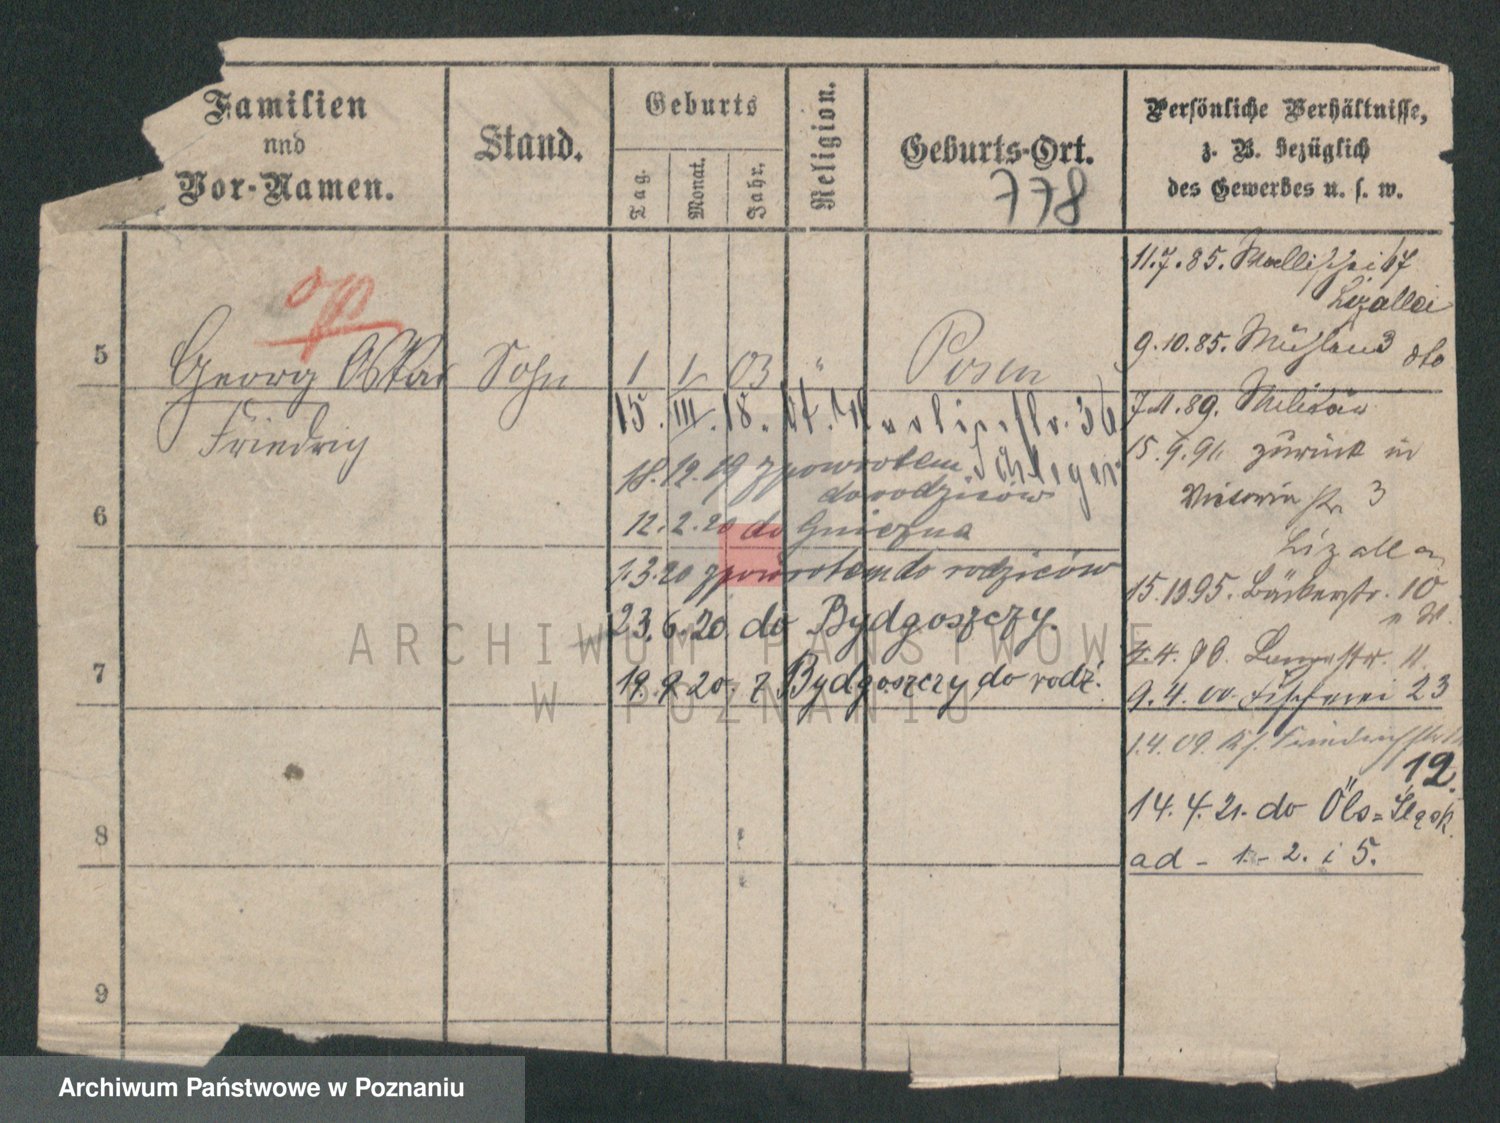 Familien
und
Vor-Namen.
Stand.
Geburts
Tag.
Monat.
Jahr.
Religion.
Geburts-Ort.
778
Persönliche Verhältnisse,
z. B. bezüglich
des Gewerbes u. s. w.
5
Georg Oskar Sohn 1 1 03 " Posen
Friedrich
15. III. 18. 36
18.12.19 z powrotem
do rodziców
6
12.2.20 do Gniezna
1.3.20 z powrotem do rodziców
23.6.20 do Bydgoszczy.
7
19.9.20. z Bydgoszczy do rodz.
8
9
11.7.85. 17
9.10.85. Mühlen 3 dto
7.11.89. Militär
15.9.91. zurück in
Victoria str. 3
Bäckerstr. 10
4.4.96. Langestr. 11.
9.4.00. Fischerei 23
1.4.09. Friedrichstr.
12.
14.4.21. do Öls-Śląsk.
ad - 1.- 2. i 5.
ARCHIWUM PAŃSTWOWE
W POZNANIU
Archiwum Państwowe w Poznaniu